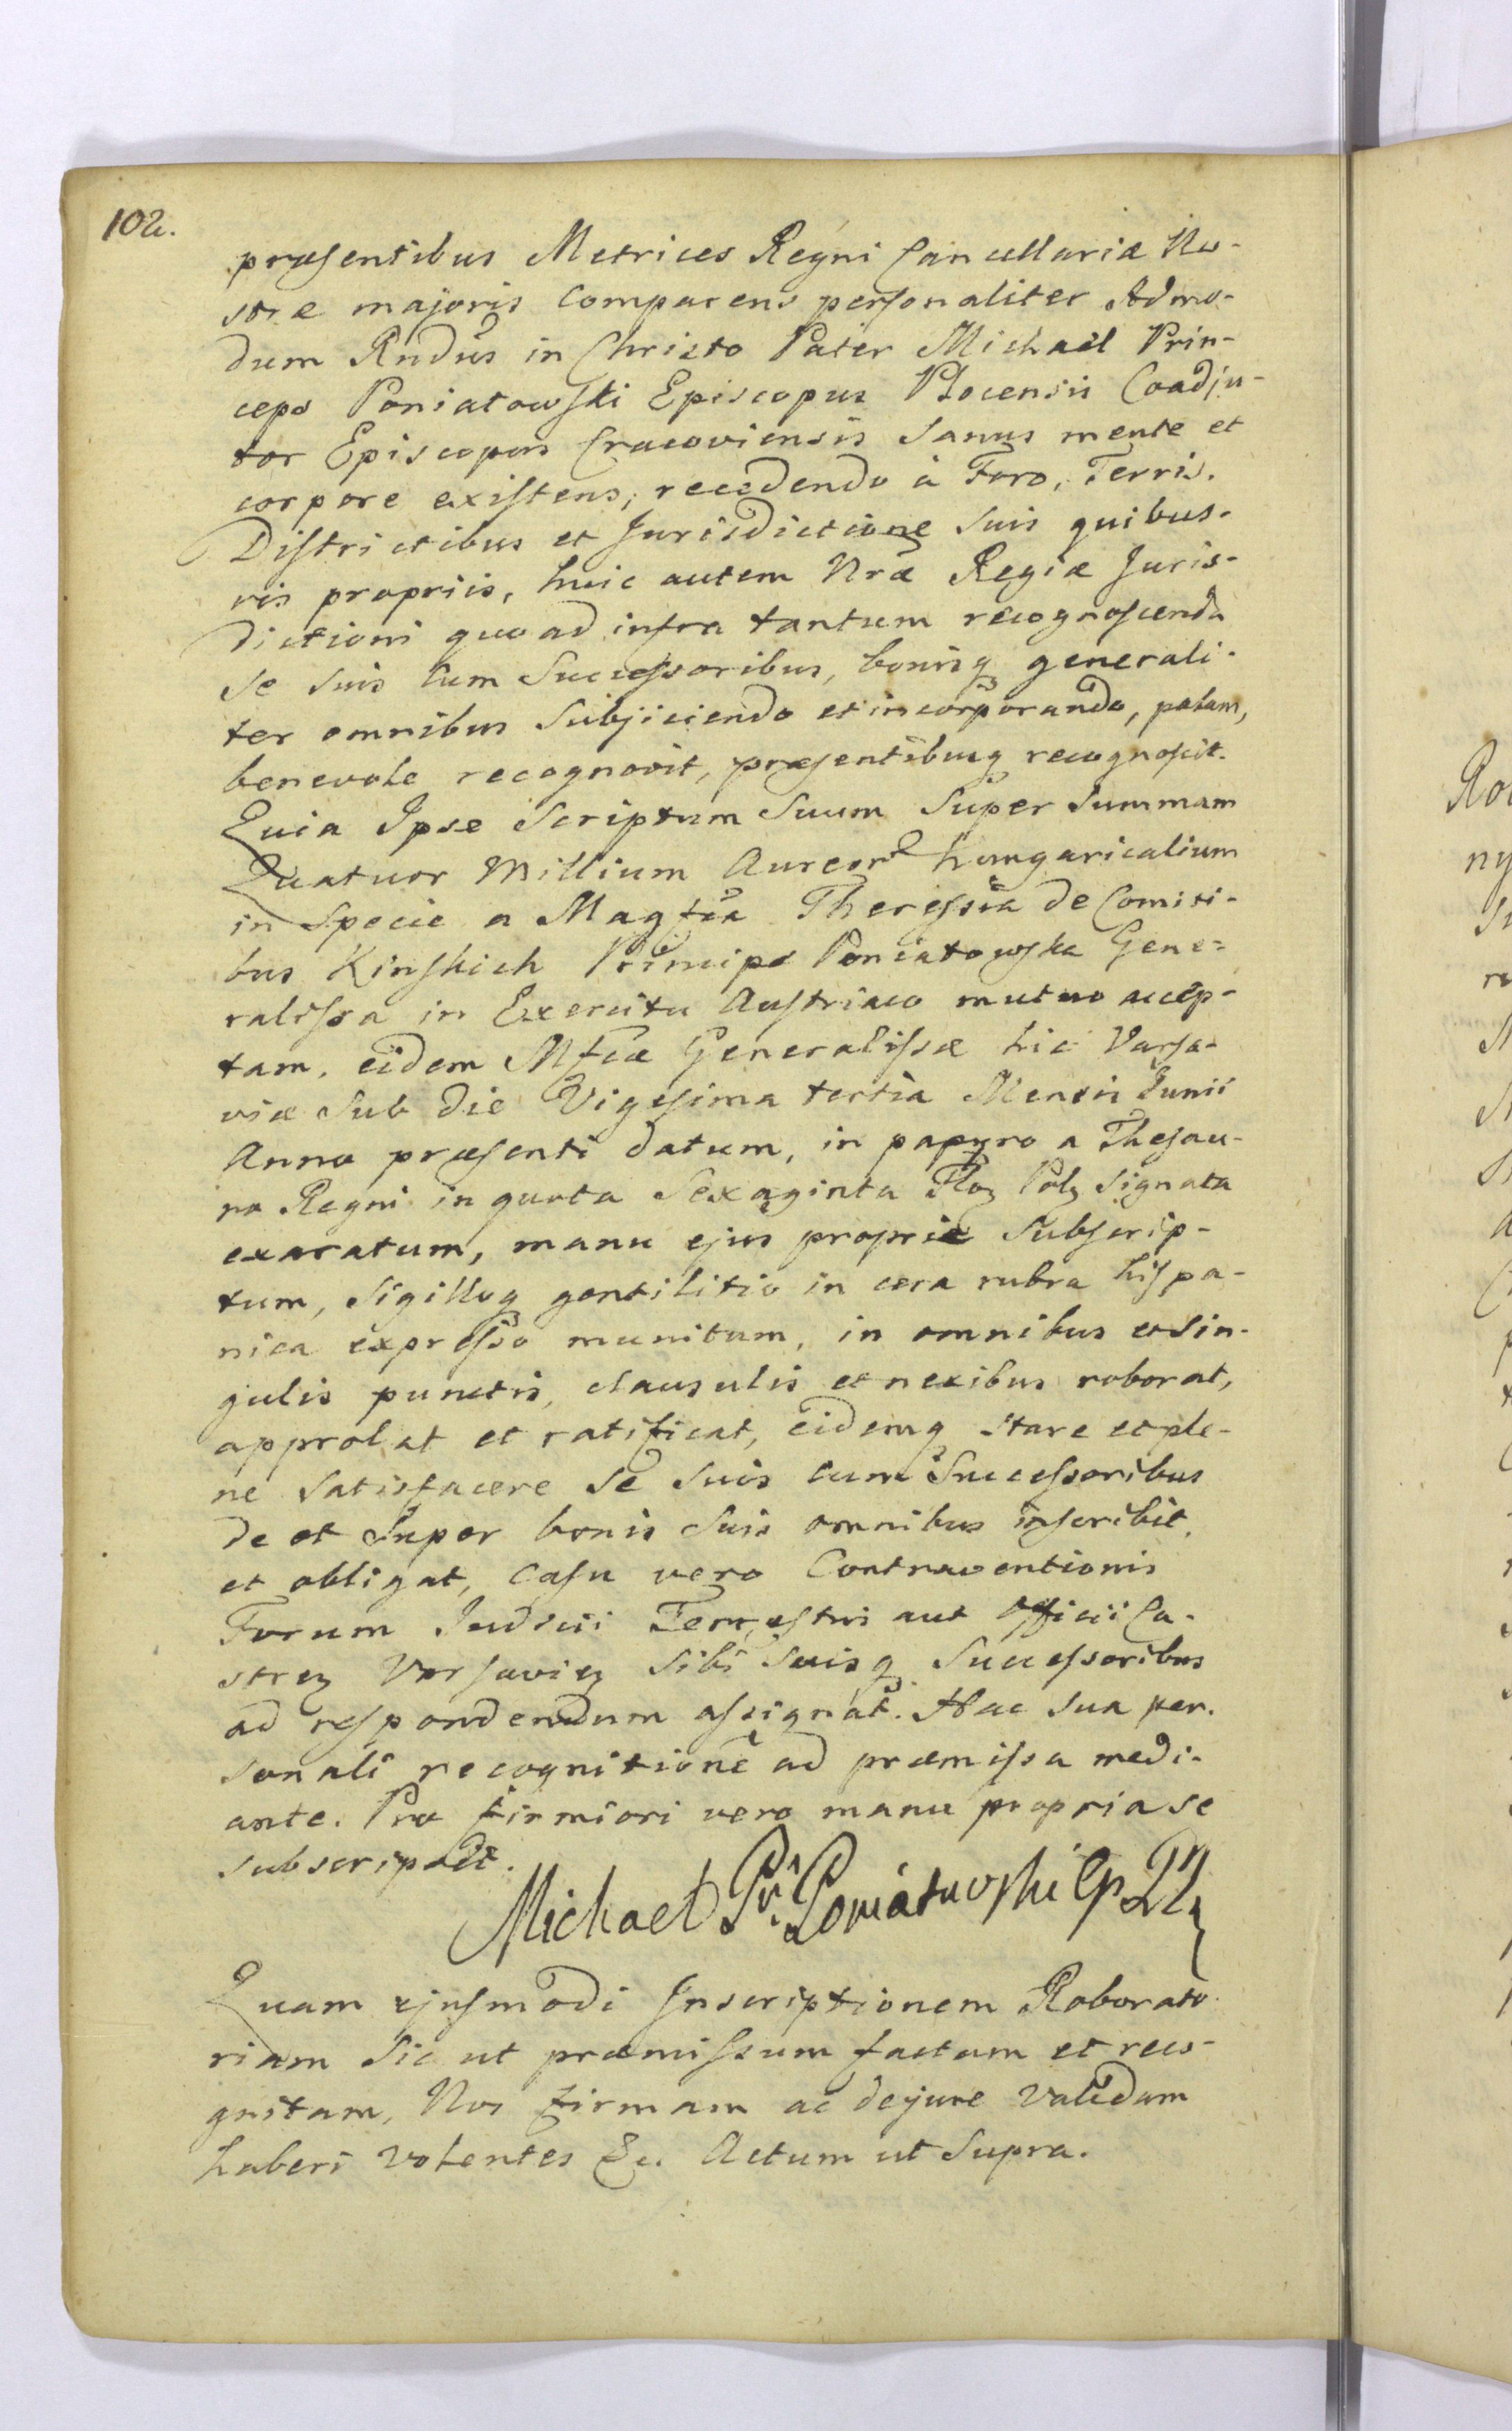 102.
præsentibus Metrices Regni Cancellariæ No-
stræ majoris Comparens personaliter Admo-
dum Rndus in Christo Pater Michael Prin-
ceps Poniatowski Episcopus Plocensis Coadju-
tor Episcopus Cracoviensis Sanus mente et
corpore existens, recedendo à Foro, Terris.
Districtibus et Jurisdictione Suis quibus-
vis propriis, huic autem Nræ Regiæ Juris-
dictioni quoad infra tantum recognoscenda
Se Suis Cum Successoribus, bonisq generali-
ter omnibus Subjiciendo et incorporando, palam,
benevole recognovit, præsentibusq recognoscit.
Quia Ipse Scriptum Suum Super Summam
Quatuor Millium Aureor Hungaricalium
in Specie a Magfca Theressia de Comiti-
bus Kinskich Princips Poniatowska Gene-
ralissa in Exercitu Austriaco mutuo accep-
tam, eidem Mfcæ Generalissæ hic Varsa-
viæ Sub die Vigesima tertia Mensis Junii
Anno præsenti datum, in papyro a Thesau-
ro Regni in quota Sexaginta Flo Pol Signata
exaratum, manu ejus propria Subscrip-
tum, Sigilloq gentilitio in cera rubra hispa-
nica expresso munitum, in omnibus et Sin-
gulis punctis, clausulis et nexibus roborat,
approbat et ratificat, eidemq Stare et ple-
ne Satisfacere Se Suis cum Successoribus
de et Super bonis Suis omnibus inscribit,
et obligat, Casu vero Contraventionis
Forum Judicii Terrestris aut Officii Ca-
stren Varsavien Sibi Suisq Successoribus
ad respondendum assignat. Hac Sua per-
sonali recognitione ad præmissa medi-
ante. Pro firmiori vero manu propria se
subscripsit.
Michael Pr. Poniatowski Ep
Quam ejusmodi Inscriptionem Roborato-
riam Sic ut præmissum factam et reco-
gnitam, Nos firmam ac dejure Validam
haberi Volentes &c. Actum ut Supra.